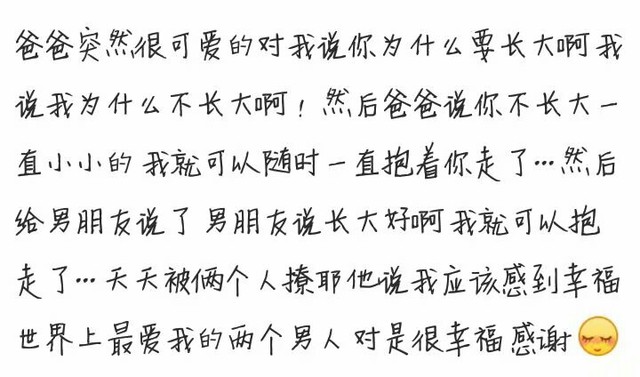 爸爸突然很可爱的对我说你为什么要长大啊我
说我为什么不长大啊！然后爸爸说你不长大一
直小小的 我就可以随时一直抱着你走了…然后
给男朋友说了 男朋友说长大好啊我就可以抱
走了…天天被俩个人撩耶他说我应该感到幸福
世界上最爱我的两个男人 对是很幸福 感谢